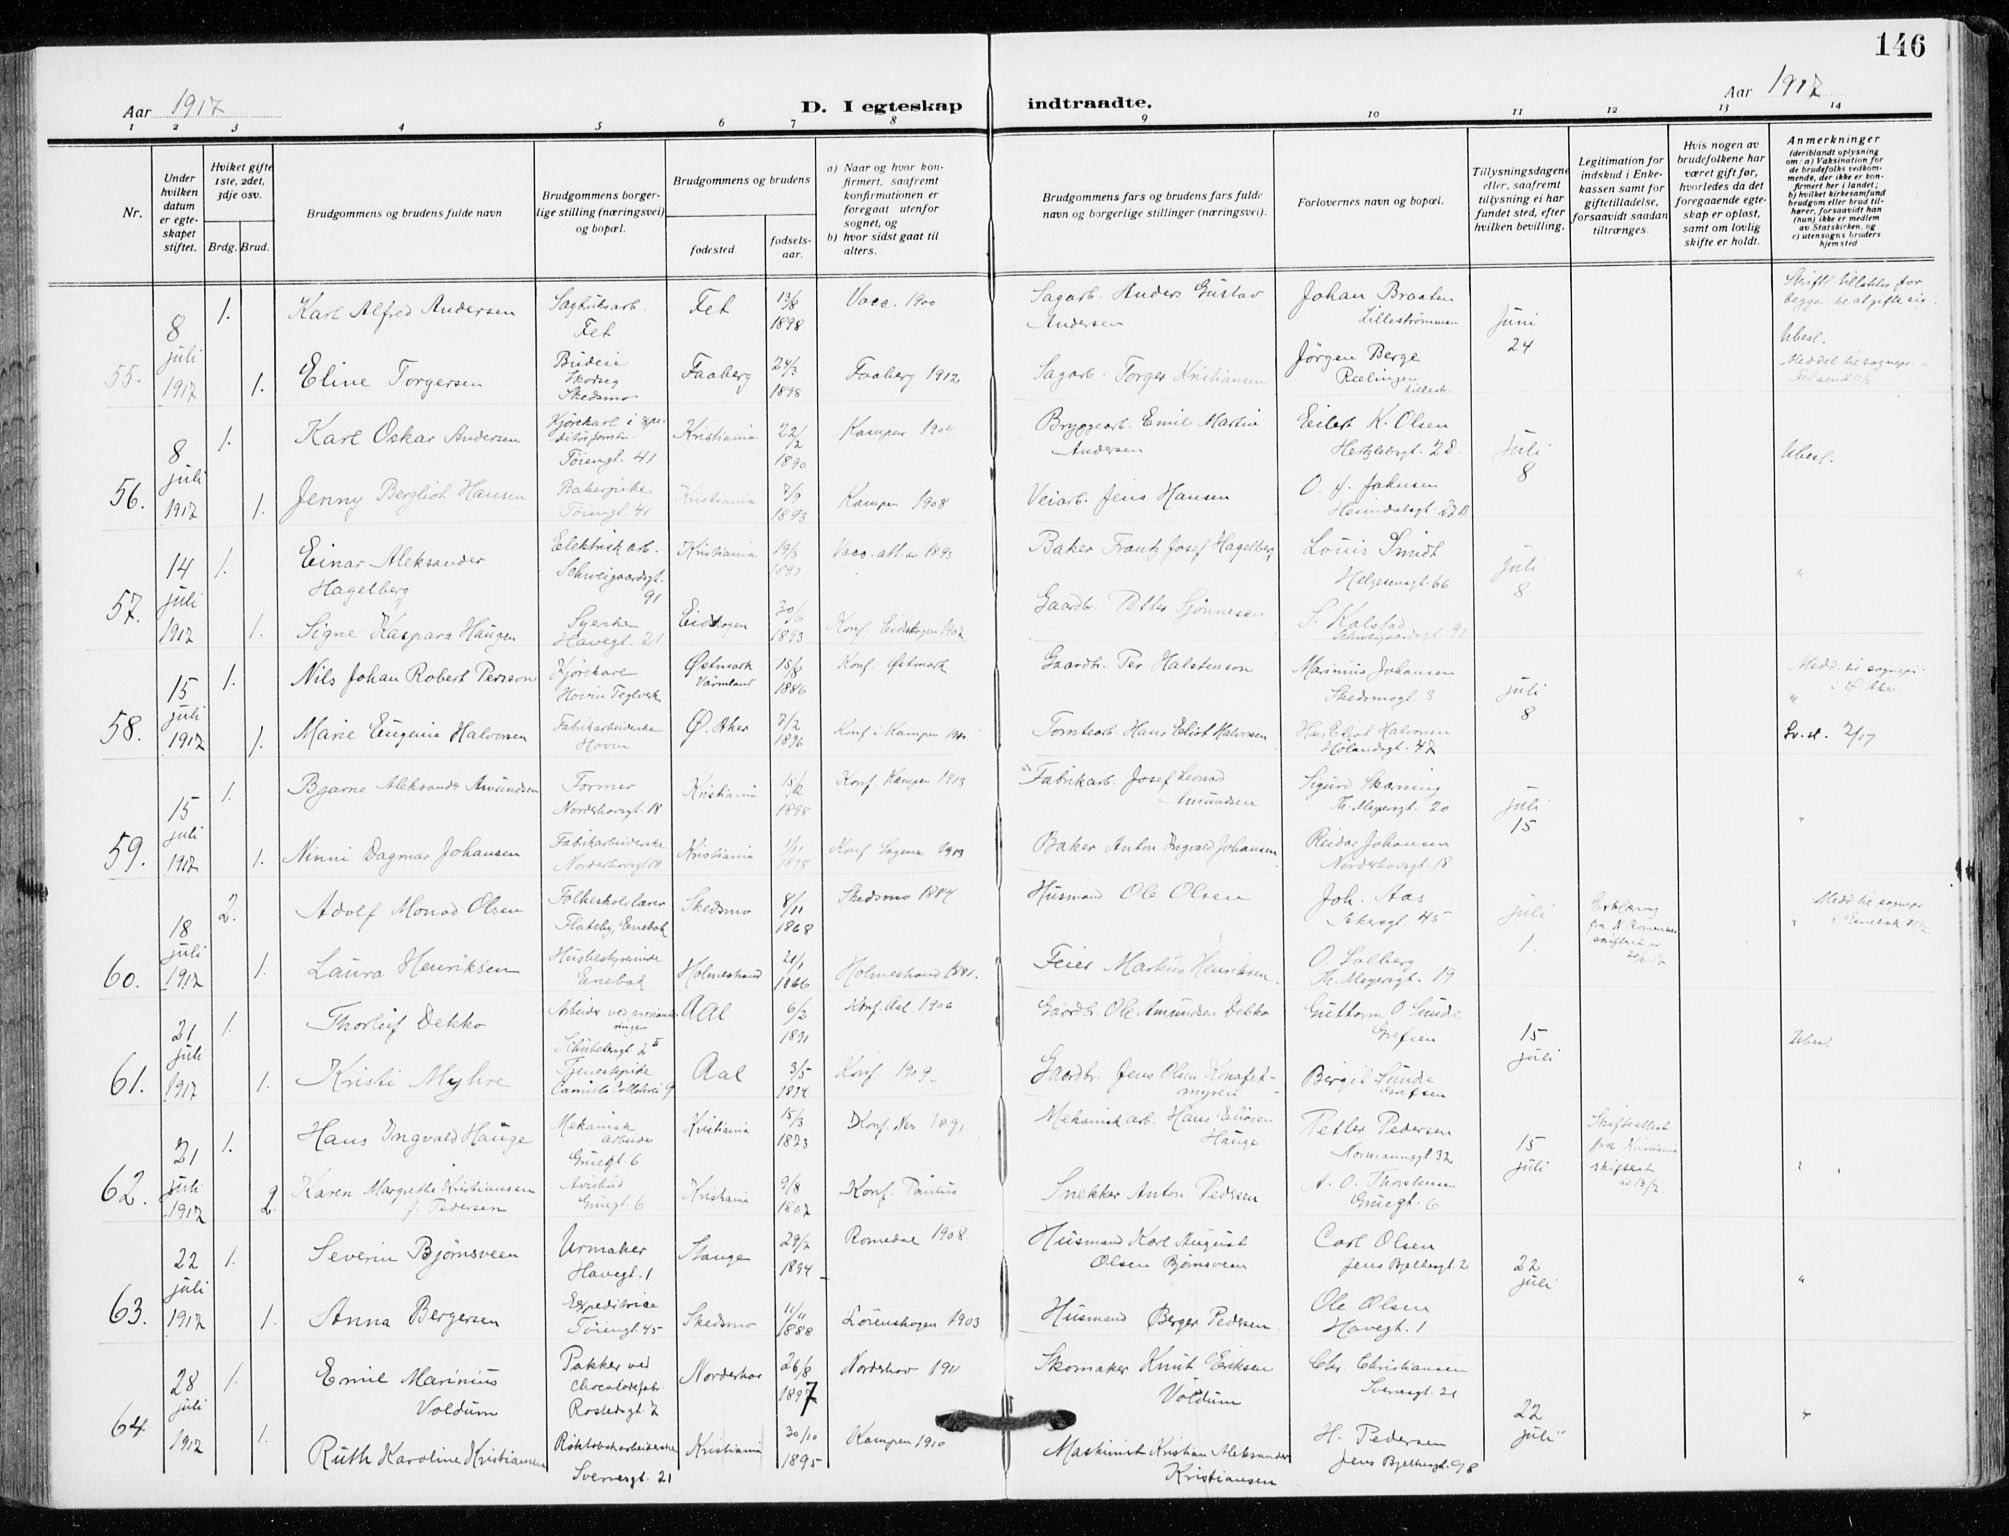 146
Aar 1917
D. I egteskap indtraadte.
Aar 1917
1 2 3 4 5 6 7 8 9 10 11 12 13 14
Nr.
Under hvilken datum er egteskapet stiftet.
Hvilket gifte 1ste, 2det, 3dje osv.
Brdg. Brud.
Brudgommens og brudens fulde navn
Brudgommens borgerlige stilling (næringsvei) og bopæl.
Brudgommens og brudens
fødested
fødselsaar.
a) Naar og hvor konfirmert, saafremt konfirmationen er foregaat utenfor sognet, og
b) hvor sidst gaat til alters.
Brudgommens fars og brudens fars fulde navn og borgerlige stillinger (næringsvei).
Forlovernes navn og bopæl.
Tillysningsdagene eller, saafremt tillysning ei har fundet sted, efter hvilken bevilling.
Legitimation for indskud i Enkekassen samt for giftetilladelse, forsaavidt saadan tiltrænges.
Hvis nogen av brudefolkene har været gift før, hvorledes da det foregaaende egteskap er opløst, samt om lovlig skifte er holdt.
Anmerkninger
(deriblandt oplysning om: a) Vaksination for de brudefolks vedkommende, der ikke er konfirmert her i landet; b) hvilket kirkesamfund brudgom eller brud tilhører, forsaavidt han (hun) ikke er medlem av Statskirken, og c) utensogns bruders hjemsted
55. 8 juli 1917
1. Karl Alfred Andersen Fet 13/8 1898 Vacc. 1900 Sagarb. Anders Gustav Andersen Johan Braaten Lillestrømmen Juni 24
1. Eline Torgersen Budeie Skedsmo Faaberg 24/3 1898 Faaberg 1912 Sagarb. Torger Kristiansen Jörgen Berge Rælingen Ubesl.
56. 8 juli 1917
1. Karl Oskar Andersen Tøiengt. 41 Kristiania 22/2 1890 Kampen 1904 Bryggearb. Emil Martin Andersen Eilert K. Olsen Hertzlebsgt. 2D. Juli 8 Ubesl.
1. Jenny Bergliot Hansen Tøiengt. 41 Kristiania 1893 Kampen 1908 Veiarb. Jens Hansen Heimdalsgt. 27B
57. 14 juli 1917
1. Einar Aleksander Hagelberg Elektrisk arb. Schweigaardsgt. 91 Kristiania Baker Frantz Josef Hagelberg Louis Smidt Helgesensgt. 66 Juli 8 "
1. Signe Kaspara Haugen Syerske Havegt. 21 Eidskogen 30/6 1893 Konf. Eidskogen 1907 Gaardbr. Petter Sjønnesen S. Kolstad Schweigaardsgt. 91
58. 15 juli 1917
1. Nils Johan Robert Persson Kjørekarl Hovin Teglverk Østmark Värmland 15/8 1886 Konf. Østmark Gaardbr. Per Halstenson Marinius Johansen Skedsmogt. 3 juli 8
1. Marie Eugenie Halvorsen Fabrikarbeiderske Hovin Ø. Aker 7/2 1896 Konf i Kampen Tomtearb. Hans Eliot Halvorsen Hans Eliot Halvorsen Hølandsgt. 47
59. 15 juli 1917
1. Bjarne Aleksander Amundsen Former Norderhovgt. 18 Kristiania 15/2 1898 Konf. Kampen 1913 Fabrikarb. Josef Leonard Amundsen Sigurd Skaning Th. Meyersgt. 20 juli 15 "
1. Ninni Dagmar Johansen Fabrikarbeiderske Norderhovgt 18 Kristiania 1898 Konf. Sagene 1913 Baker Anton Ingvald Johansen Reidar Johansen Norderhovgt. 18
60. 18 juli 1917
2. Adolf Monrad Olsen Folkeskolelærer Flateby, Enebak Skedsmo 8/11 1868 Skedsmo 1884 Husmand Ole Olsen Joh. Aas Akersgt. 45 juli 1. Erklæring
1. Laura Henriksen Husbestyrerinde Enebak Holmestrand 21/1 1866 Holmestrand 1881. Feier Markus Henriksen O. Solberg Th. Meyersgt. 19
61. 21 juli 1917
1. Thorleif Dekko Schübelersgt 2 II Aal 6/2 1891 Konf. Aal 1906 Gaardbr. Ole Amundsen Dekko Guttorm O Sunde Grefsen 15 juli Ubesl
1. Kristi Myhre Tjenestepike Camilla Colletsvei 9 Aal 3/5 1894 Konf. 1909. Gaardbr. Jens Olsen Birgit Sunde Grefsen
62. 21 juli 1917
1. Hans Ingvald Hauge Mekanisk arbeider Gruegt. 6 Kristiania 15/3 1873 Mekanisk arb. Hans Eliasen Hauge Petter Pedersen Normannsgt 32 15 juli Skifteattest fra Kristiania skifteret
2. Karen Margrethe Kristiansen f. Pedersen Avisbud Gruegt. 6 Kristiania 9/8 Konf. Paulus Snekker Anton Pedersen A. O. Thorstensen Gruegt. 6
63. 22 juli 1917
1. Severin Bjørnsveen Urmaker Havegt. 1 Stange 29/7 1894 Romedal 1908 Husmand Karl August Olsen Bjørnsveen Carl Olsen Jens Bjelkesgt. 2 22 juli "
1. Anna Bergersen Expeditrice Tøiengt. 45 Skedsmo 11/11 1888 Lørenskogen 1903 Husmand Berger Pedersen Ole Olsen Havegt. 1
64 28 juli 1917
1. Emil Marinius Voldum Pakker ved chocoladefabr. Rostedsgt. 7 Norderhov 26/8 1897 Norderhov 1911 Skomaker Knut Eriksen Voldum Chr. Christiansen Sverresgt. 21 22 juli "
1. Ruth Karoline Kristiansen Sverresgt. 21 Kristiania 30/10 1895 Kampen 1910 Maskinist Kristian Aleksander Kristiansen H. Pedersen Jens Bjelkesgt. 98